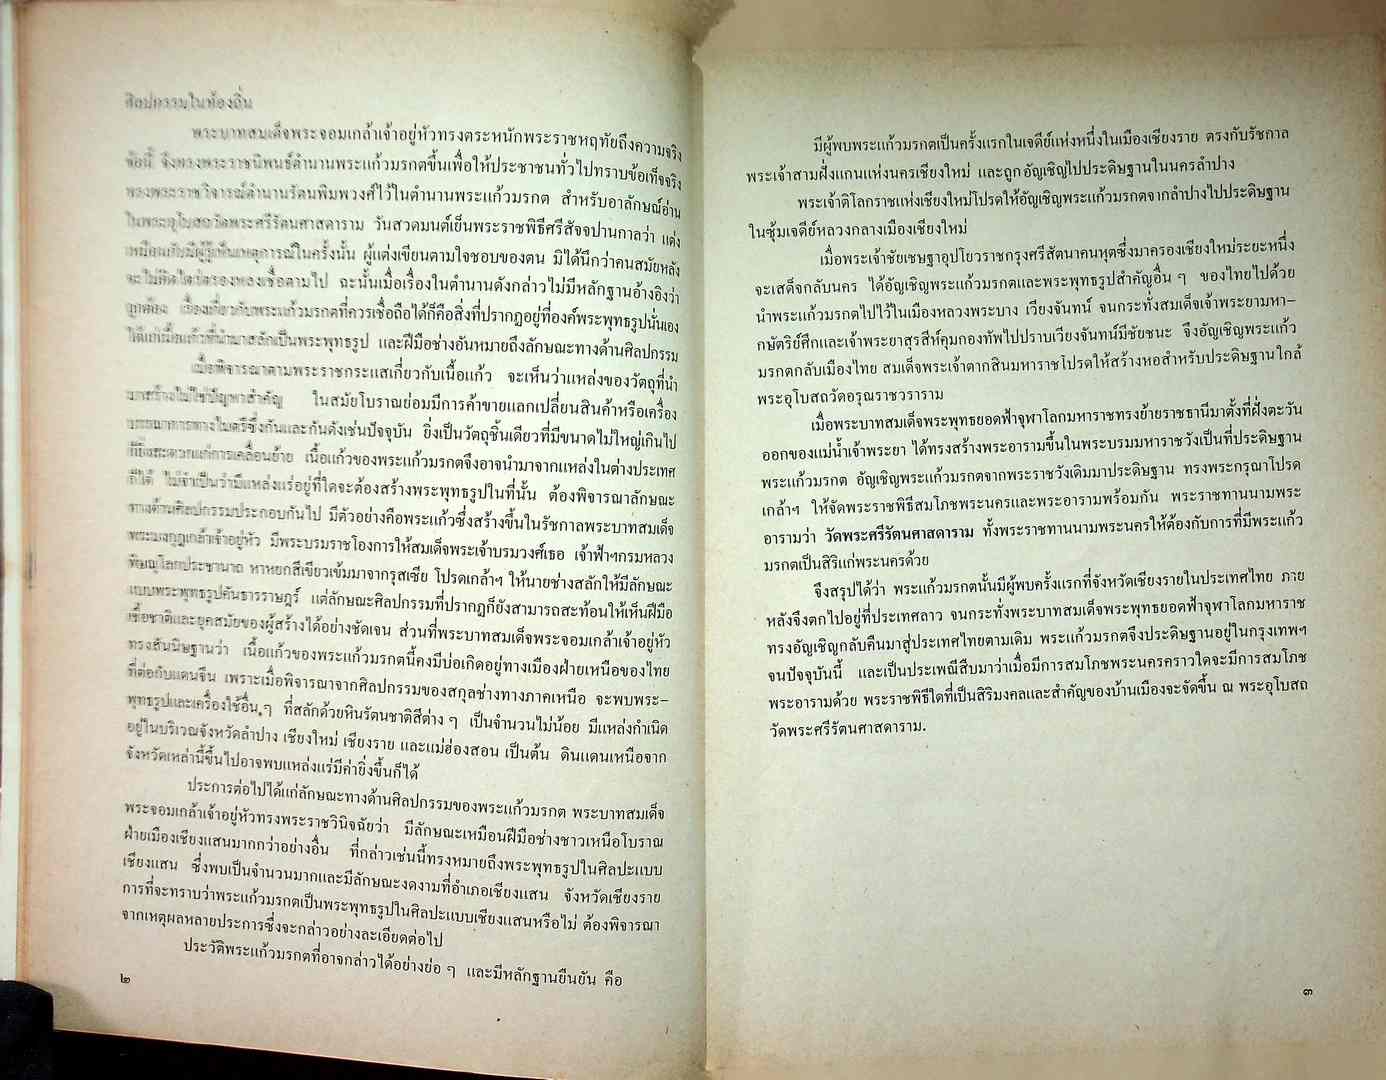 ศิลปกรรมในท้องถิ่น
พระบาทสมเด็จพระจอมเกล้าเจ้าอยู่หัวทรงตระหนักพระราชหฤทัยถึงความจริง
ข้อนี้ จึงทรงพระราชนิพนธ์ตำนานพระแก้วมรกตขึ้นเพื่อให้ประชาชนทั่วไปทราบข้อเท็จจริง
ทรงพระราชวิจารณ์ตำนานรัตนพิมพวงศ์ไว้ในตำนานพระแก้วมรกต สำหรับอาลักษณ์อ่าน
ในพระอุโบสถวัดพระศรีรัตนศาสดาราม วันสวดมนต์เย็นพระราชพิธีศรีสัจจปานกาลว่า แต่ง
เหมือนกับมีผู้รู้เห็นเหตุการณ์ในครั้งนั้น ผู้แต่งเขียนตามใจชอบของตน มิได้นึกว่าคนสมัยหลัง
จะไม่คิดไตร่ตรองหลงเชื่อตามไป ฉะนั้นเมื่อเรื่องในตำนานดังกล่าวไม่มีหลักฐานอ้างอิงว่า
ถูกต้อง เรื่องเกี่ยวกับพระแก้วมรกตที่ควรเชื่อถือได้ก็คือสิ่งที่ปรากฏอยู่ที่องค์พระพุทธรูปนั่นเอง
ได้แก่เนื้อแก้วที่นำมาสลักเป็นพระพุทธรูป และฝีมือช่างอันหมายถึงลักษณะทางด้านศิลปกรรม
เมื่อพิจารณาตามพระราชกระแสเกี่ยวกับเนื้อแก้ว จะเห็นว่าแหล่งของวัตถุที่นำ
มาสร้างไม่ใช่ปัญหาสำคัญ ในสมัยโบราณย่อมมีการค้าขายแลกเปลี่ยนสินค้าหรือเครื่อง
บรรณาการทางไมตรีซึ่งกันและกันดังเช่นปัจจุบัน ยิ่งเป็นวัตถุชิ้นเดียวที่มีขนาดไม่ใหญ่เกินไป
ก็ยิ่งสะดวกแก่การเคลื่อนย้าย เนื้อแก้วของพระแก้วมรกตจึงอาจนำมาจากแหล่งในต่างประเทศ
ก็ได้ ไม่จำเป็นว่ามีแหล่งแร่อยู่ที่ใดจะต้องสร้างพระพุทธรูปในที่นั้น ต้องพิจารณาลักษณะ
ทางด้านศิลปกรรมประกอบกันไป มีตัวอย่างคือพระแก้วซึ่งสร้างขึ้นในรัชกาลพระบาทสมเด็จ
พระมงกุฎเกล้าเจ้าอยู่หัว มีพระบรมราชโองการให้สมเด็จพระเจ้าบรมวงศ์เธอ เจ้าฟ้าฯกรมหลวง
พิษณุโลกประชานาถ หาหยกสีเขียวเข้มมาจากรุสเซีย โปรดเกล้าฯ ให้นายช่างสลักให้มีลักษณะ
แบบพระพุทธรูปคันธารราษฎร์ แต่ลักษณะศิลปกรรมที่ปรากฏก็ยังสามารถสะท้อนให้เห็นฝีมือ
เชื้อชาติและยุคสมัยของผู้สร้างได้อย่างชัดเจน ส่วนที่พระบาทสมเด็จพระจอมเกล้าเจ้าอยู่หัว
ทรงสันนิษฐานว่า เนื้อแก้วของพระแก้วมรกตนี้คงมีบ่อเกิดอยู่ทางเมืองฝ่ายเหนือของไทย
ที่ต่อกับแดนจีน เพราะเมื่อพิจารณาจากศิลปกรรมของสกุลช่างทางภาคเหนือ จะพบพระ–
พุทธรูปและเครื่องใช้อื่น ๆ ที่สลักด้วยหินรัตนชาติสีต่าง ๆ เป็นจำนวนไม่น้อย มีแหล่งกำเนิด
อยู่ในบริเวณจังหวัดลำปาง เชียงใหม่ เชียงราย และแม่ฮ่องสอน เป็นต้น ดินแดนเหนือจาก
จังหวัดเหล่านี้ขึ้นไปอาจพบแหล่งแร่มีค่ายิ่งขึ้นก็ได้
ประการต่อไปได้แก่ลักษณะทางด้านศิลปกรรมของพระแก้วมรกต พระบาทสมเด็จ
พระจอมเกล้าเจ้าอยู่หัวทรงพระราชวินิจฉัยว่า มีลักษณะเหมือนฝีมือช่างชาวเหนือโบราณ
ฝ่ายเมืองเชียงแสนมากกว่าอย่างอื่น ที่กล่าวเช่นนี้ทรงหมายถึงพระพุทธรูปในศิลปะแบบ
เชียงแสน ซึ่งพบเป็นจำนวนมากและมีลักษณะงดงามที่อำเภอเชียงแสน จังหวัดเชียงราย
การที่จะทราบว่าพระแก้วมรกตเป็นพระพุทธรูปในศิลปะแบบเชียงแสนหรือไม่ ต้องพิจารณา
จากเหตุผลหลายประการซึ่งจะกล่าวอย่างละเอียดต่อไป
ประวัติพระแก้วมรกตที่อาจกล่าวได้อย่างย่อ ๆ และมีหลักฐานยืนยัน คือ
๒
มีผู้พบพระแก้วมรกตเป็นครั้งแรกในเจดีย์แห่งหนึ่งในเมืองเชียงราย ตรงกับรัชกาล
พระเจ้าสามฝั่งแกนแห่งนครเชียงใหม่ และถูกอัญเชิญไปประดิษฐานในนครลำปาง
พระเจ้าติโลกราชแห่งเชียงใหม่โปรดให้อัญเชิญพระแก้วมรกตจากลำปางไปประดิษฐาน
ในซุ้มเจดีย์หลวงกลางเมืองเชียงใหม่
เมื่อพระเจ้าชัยเชษฐาอุปโยวราชกรุงศรีสัตนาคนหุตซึ่งมาครองเชียงใหม่ระยะหนึ่ง
จะเสด็จกลับนคร ได้อัญเชิญพระแก้วมรกตและพระพุทธรูปสำคัญอื่น ๆ ของไทยไปด้วย
นำพระแก้วมรกตไปไว้ในเมืองหลวงพระบาง เวียงจันทน์ จนกระทั่งสมเด็จเจ้าพระยามหา–
กษัตริย์ศึกและเจ้าพระยาสุรสีห์คุมกองทัพไปปราบเวียงจันทน์มีชัยชนะ จึงอัญเชิญพระแก้ว
มรกตกลับเมืองไทย สมเด็จพระเจ้าตากสินมหาราชโปรดให้สร้างหอสำหรับประดิษฐานใกล้
พระอุโบสถวัดอรุณราชวราราม
เมื่อพระบาทสมเด็จพระพุทธยอดฟ้าจุฬาโลกมหาราชทรงย้ายราชธานีมาตั้งที่ฝั่งตะวัน
ออกของแม่น้ำเจ้าพระยา ได้ทรงสร้างพระอารามขึ้นในพระบรมมหาราชวังเป็นที่ประดิษฐาน
พระแก้วมรกต อัญเชิญพระแก้วมรกตจากพระราชวังเดิมมาประดิษฐาน ทรงพระกรุณาโปรด
เกล้าฯ ให้จัดพระราชพิธีสมโภชพระนครและพระอารามพร้อมกัน พระราชทานนามพระ
อารามว่า วัดพระศรีรัตนศาสดาราม ทั้งพระราชทานนามพระนครให้ต้องกับการที่มีพระแก้ว
มรกตเป็นสิริแก่พระนครด้วย
จึงสรุปได้ว่า พระแก้วมรกตนั้นมีผู้พบครั้งแรกที่จังหวัดเชียงรายในประเทศไทย ภาย
หลังจึงตกไปอยู่ที่ประเทศลาว จนกระทั่งพระบาทสมเด็จพระพุทธยอดฟ้าจุฬาโลกมหาราช
ทรงอัญเชิญกลับคืนมาสู่ประเทศไทยตามเดิม พระแก้วมรกตจึงประดิษฐานอยู่ในกรุงเทพฯ
จนปัจจุบันนี้ และเป็นประเพณีสืบมาว่าเมื่อมีการสมโภชพระนครคราวใดจะมีการสมโภช
พระอารามด้วย พระราชพิธีใดที่เป็นสิริมงคลและสำคัญของบ้านเมืองจะจัดขึ้น ณ พระอุโบสถ
วัดพระศรีรัตนศาสดาราม.
๓